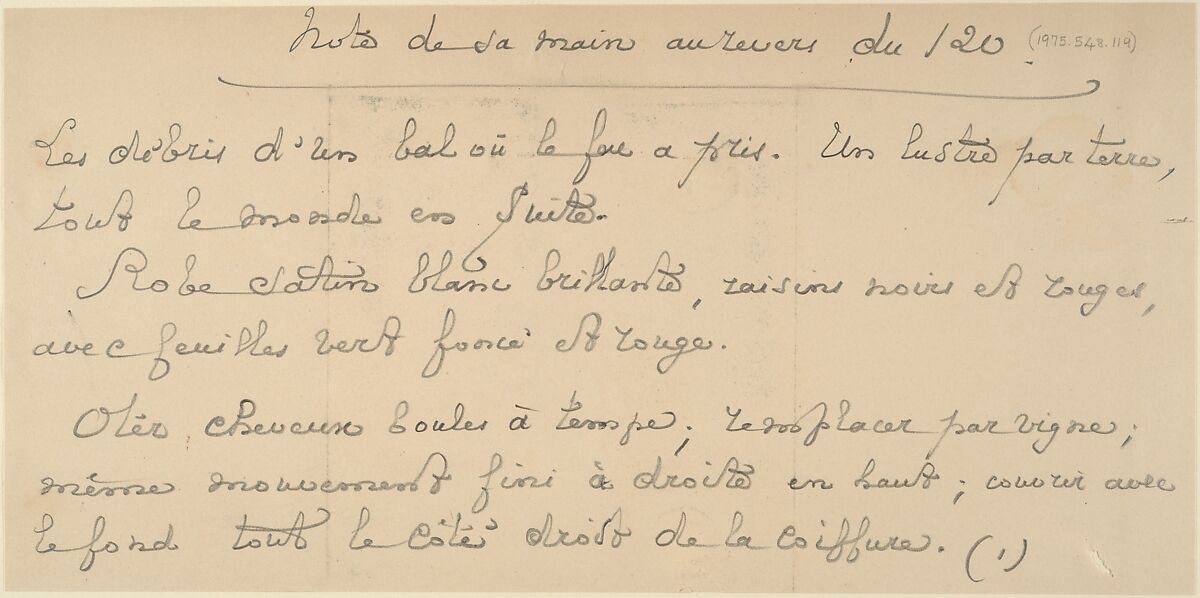 Note de sa main au revers du 120 (1975.548.119)
Les débris d'un bal où le feu a pris. Un lustre par terre,
tout le monde en fuite.
Robe satin blanc brillante, raisins noirs et rouges,
avec feuilles vert foncé et rouge.
Oter cheveux boules à tempe, remplacer par vigne;
même mouvement fini à droite en haut; couvrir avec
le fond tout le côté droit de la coiffure. (1)